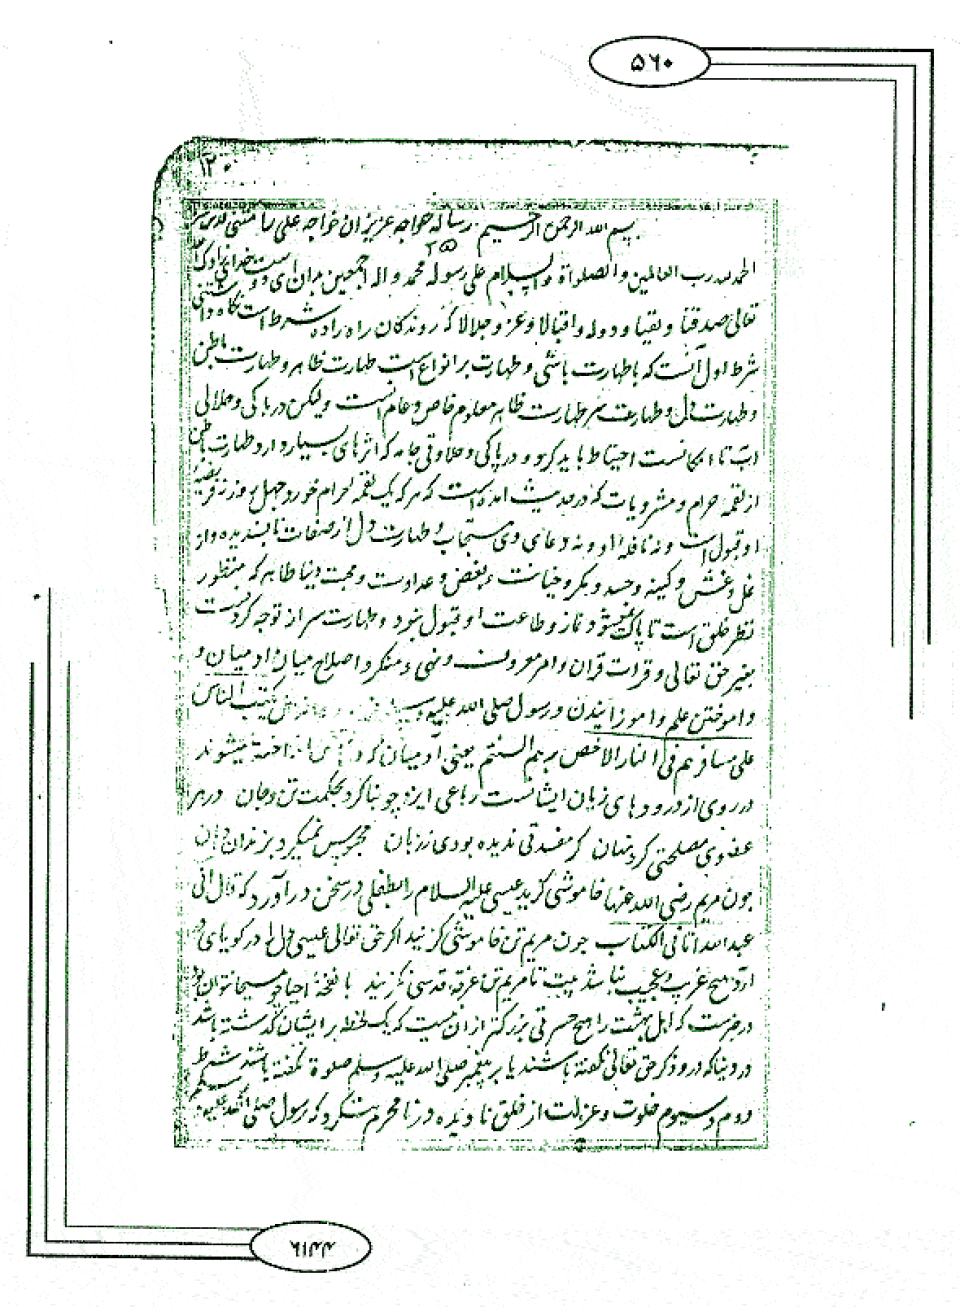 ۵۶۰
۱۲۰
بسم الله الرحمن الرحیم رساله خواجه عزیزان خواجه علی رامتنی
۲۵
الحمدلله رب العالمین والصلواة والسلام علی رسوله محمد واله اجمعین بدان ای دوست خدای
تعالی صدقا و یقینا و دولة و اقبالا و عزو جلالا که روندکان راه راده شرط است نکاه داشتنی
شرط اول آنست که با طهارت باشی و طهارت بر انواع است طهارت ظاهر و طهارت باطن
و طهارت دل و طهارت سر طهارت ظاهر معلوم خاص و عام است ولیکن در پاکی و حلالی
اب تا امکانست احتیاط باید کرد و در پاکی و حلاوتی جامه که اثرهای بسیار دارد طهارت باطن
از لقمه حرام و مشروبات که در حدیث امده است که هر که یک لقمه حرام خورد چهل روز نه فریضهٔ
او قبول است و نه نافلهٔ او و نه دعای وی مستجاب و طهارت دل از صفات ناپسندیده و از
غل و غش و کینه و حسد و مکر و خیانت و بغض و عداوت و محبت دنیا ظاهر که منظور
نظر خلق است تا پاک نشود نماز و طاعت او قبول نبود و طهارت سر از توجه کردنست
بغیر حق تعالی و قرات قران و امر معروف و نهی منکر و اصلاح میان ادمیان و
و اموختن علم و اموزانیدن و رسول صلی الله علیه یکب الناس
علی مناخرهم فی النار الا حصائد السنتهم یعنی آدمیان انداخته میشوند
در روی از درودهای زبان ایشانست رباعی ایزد چو بنا کرد بحکمت تن و جان در هر
عضوی مصلحتی کرد نهان کر مفسدتی ندیده بودی ز زبان محبوس نمیکرد بزندان دهان
جون مریم رضی الله عنها خاموشی کزید عیسی علیه السلام را بطفلی در سخن در آورد که قال انی
عبدالله اتانی الکتاب جون مریم تن خاموشی کزیند اکر حق تعالی عیسی دل را در کویای
ارد هیچ غریب و عجیب نباشد بیت تا مریم تن غرقه قدسی نکزیند با نفخهٔ احیا چو مسیحا نتوان بود
در خبرست که اهل بهشت را هیچ حسرتی بزرکتر از ان نیست که یک لحظه بر ایشان کذشته باشد
در دنیا که درو ذکر حق تعالی نکفته باشند یا بر پیغمبر صلی الله علیه وسلم صلوة نکفته باشند شرط
دوم و سیوم خلوت و عزلت از خلق تا دیده در نامحرم ننکرد که رسول صلی الله علیه وسلم
۶۱۴۴